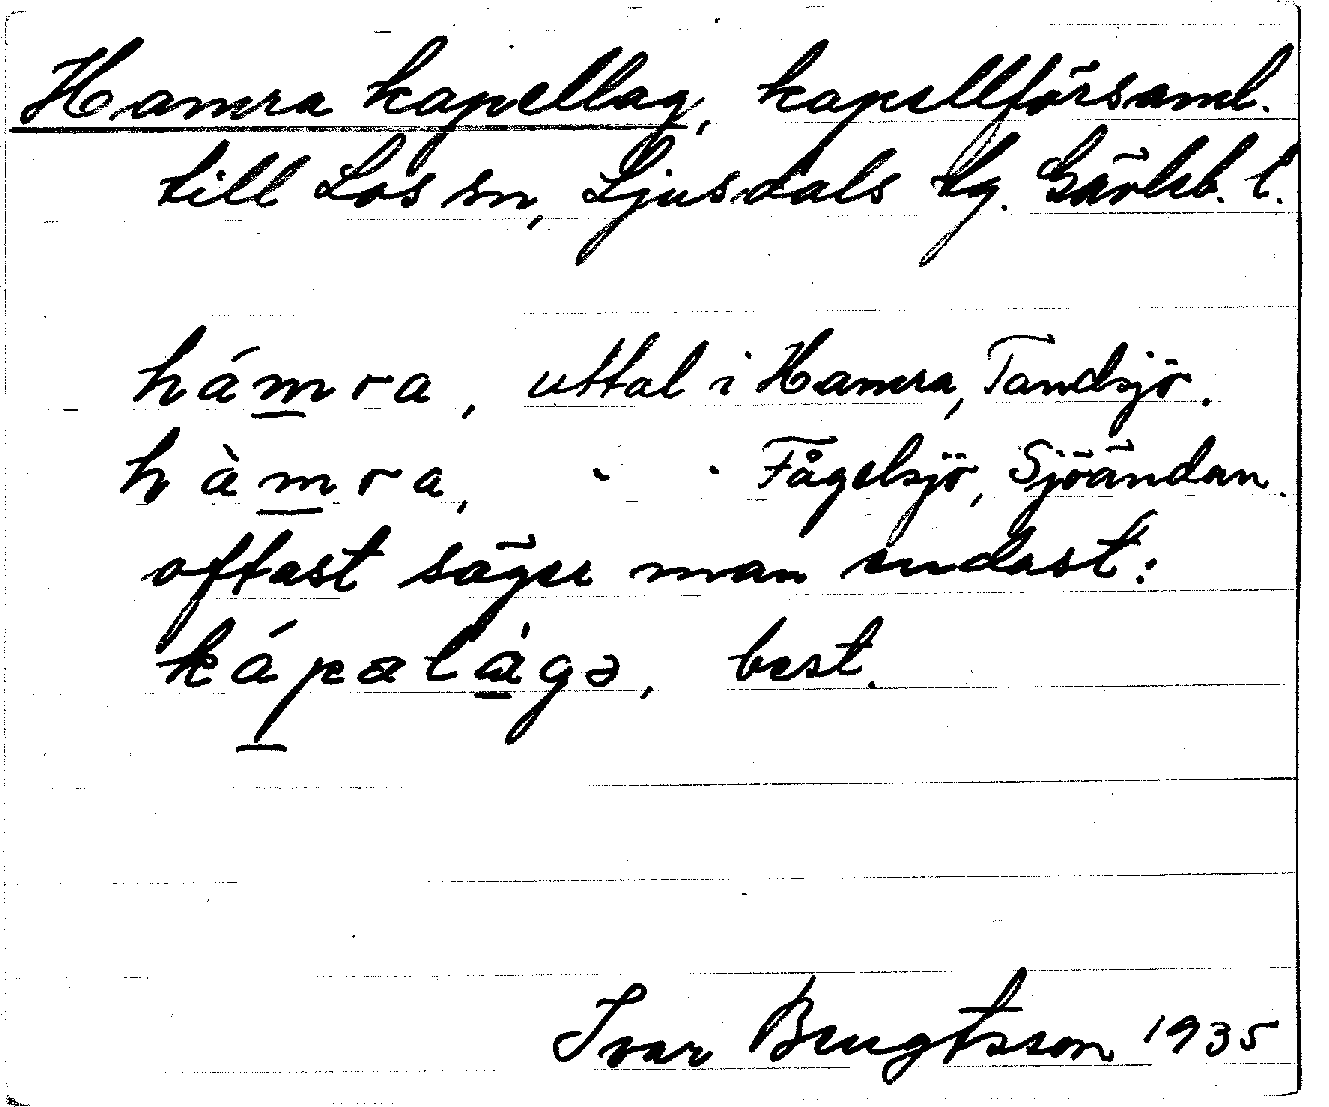 Hamra kapellag, kapellförsaml.
till Los sn, Ljusdals tg. Gävleb. l.
hámra, uttal i Hamra, Tandsjö.
hàmra, " " Fågelsjö, Sjöändan.
oftast säger man endast:
kápalàgə, best.
Ivar Bengtsson 1935